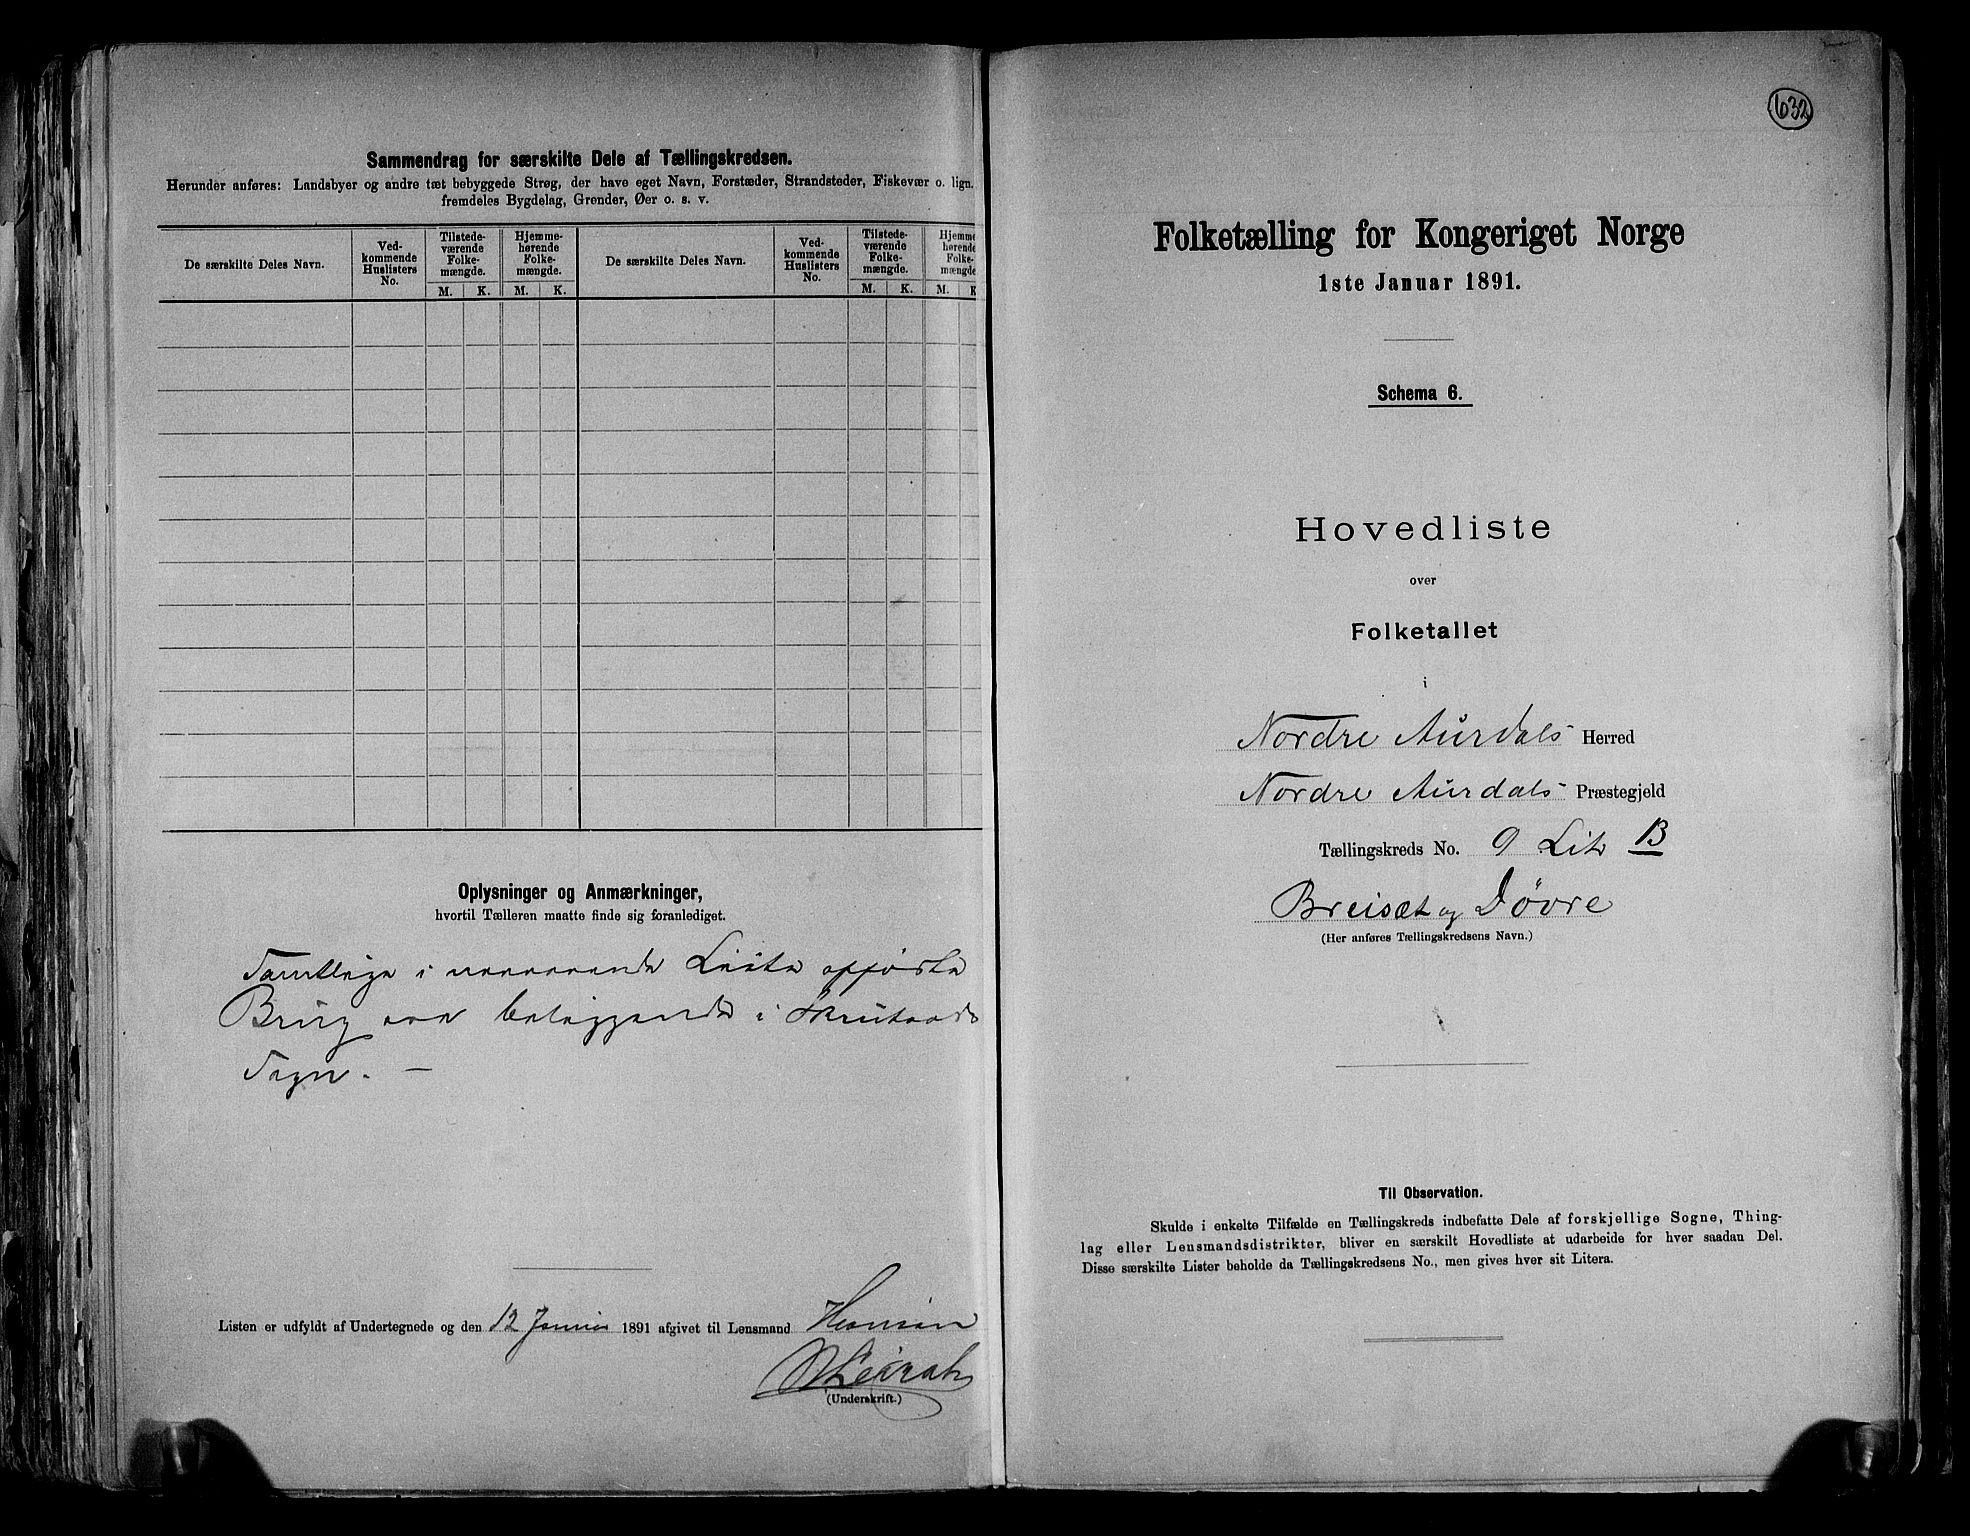 Sammendrag for særskilte Dele af Tællingskredsen.
Herunder anføres: Landsbyer og andre tæt bebyggede Strøg, der have eget Navn, Forstæder, Strandsteder, Fiskevær o. lign.
fremdeles Bygdelag, Grender, Øer o. s. v.
De særskilte Deles Navn.
Ved-
kommende
Huslisters
No.
Tilstede-
værende
Folke-
mængde.
Hjemme-
hørende
Folke-
mængde.
M. K. M. K.
De særskilte Deles Navn.
Ved-
kommende
Huslisters
No.
Tilstede-
værende
Folke-
mængde.
Hjemme
hørende
Folke-
mængde
M. K. M. K
Oplysninger og Anmærkninger,
hvortil Tælleren maatte finde sig foranlediget.
Samtlige i nærværende Liste opførte
Brug ere beliggende i Skrutvold
Sogn. —
Listen er udfyldt af Undertegnede og den 12 Januar 1891 afgivet til Lensmand
(Underskrift.)
632
Folketælling for Kongeriget Norge
1ste Januar 1891.
Schema 6.
Hovedliste
over
Folketallet
i
Nordre Aurdals Herred
Nordre Aurdals Præstegjeld
Tællingskreds No. 9 Lit B
Breisæt og Døvre
(Her anføres Tællingskredsens Navn.)
Til Observation.
Skulde i enkelte Tilfælde en Tællingskreds indbefatte Dele af forskjellige Sogne, Thing-
lag eller Lensmandsdistrikter, bliver en særskilt Hovedliste at udarbeide for hver saadan Del.
Disse særskilte Lister beholde da Tællingskredsens No., men gives hver sit Litera.